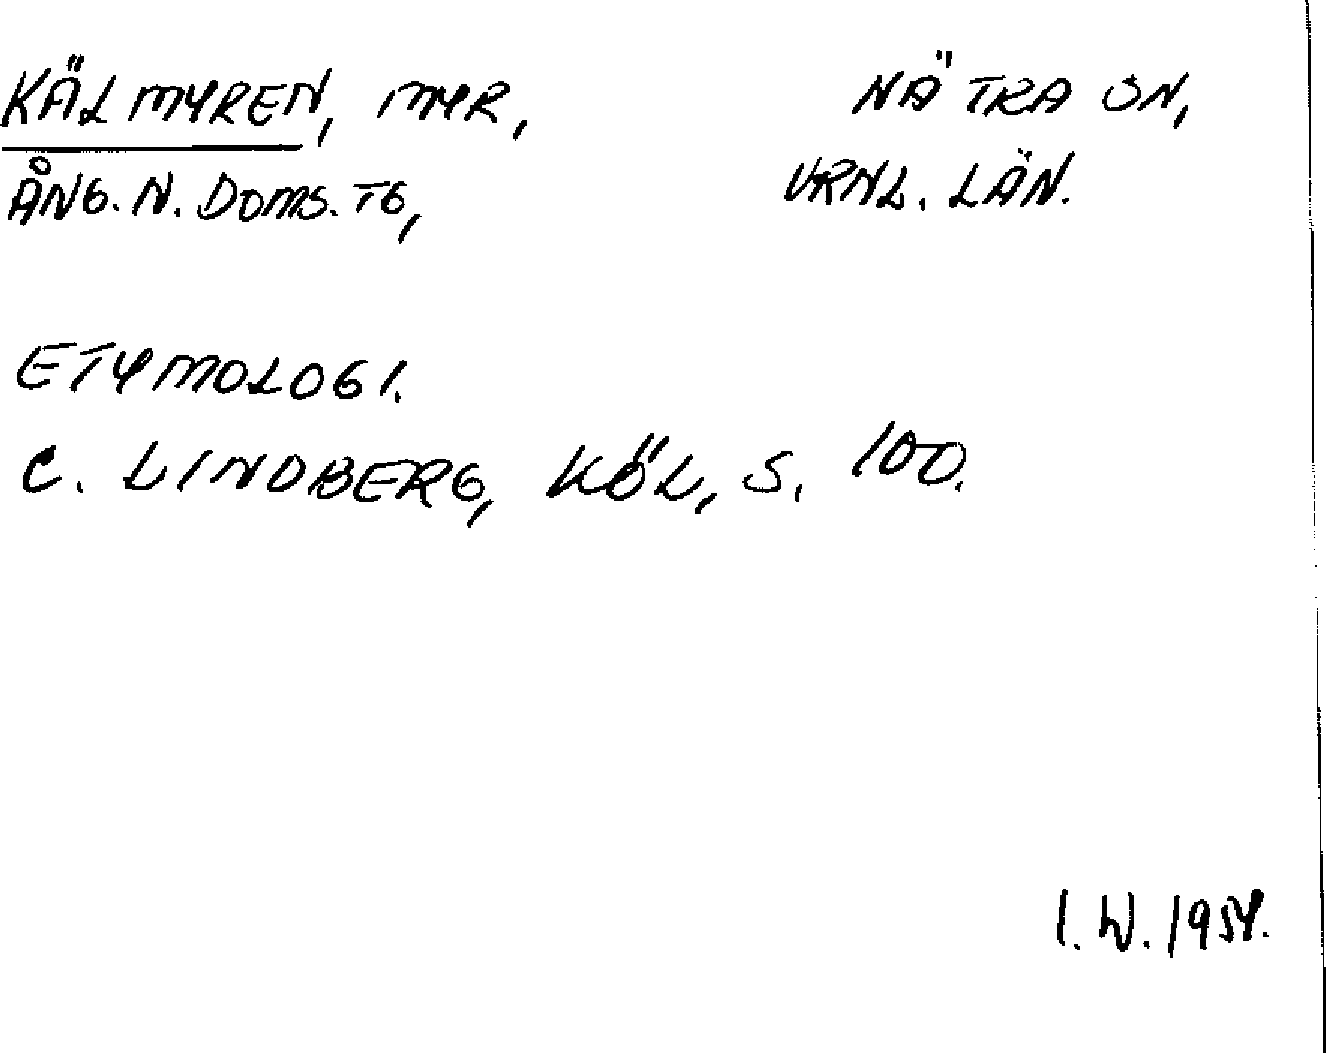 KÄLMYREN, MYR, NÄTRA SN,
ÅNG. N. DOMS. TG, VRNL. LÄN.
ETYMOLOGI.
C. LINDBERG, KÖL, S. 100.
I. W. 1954.